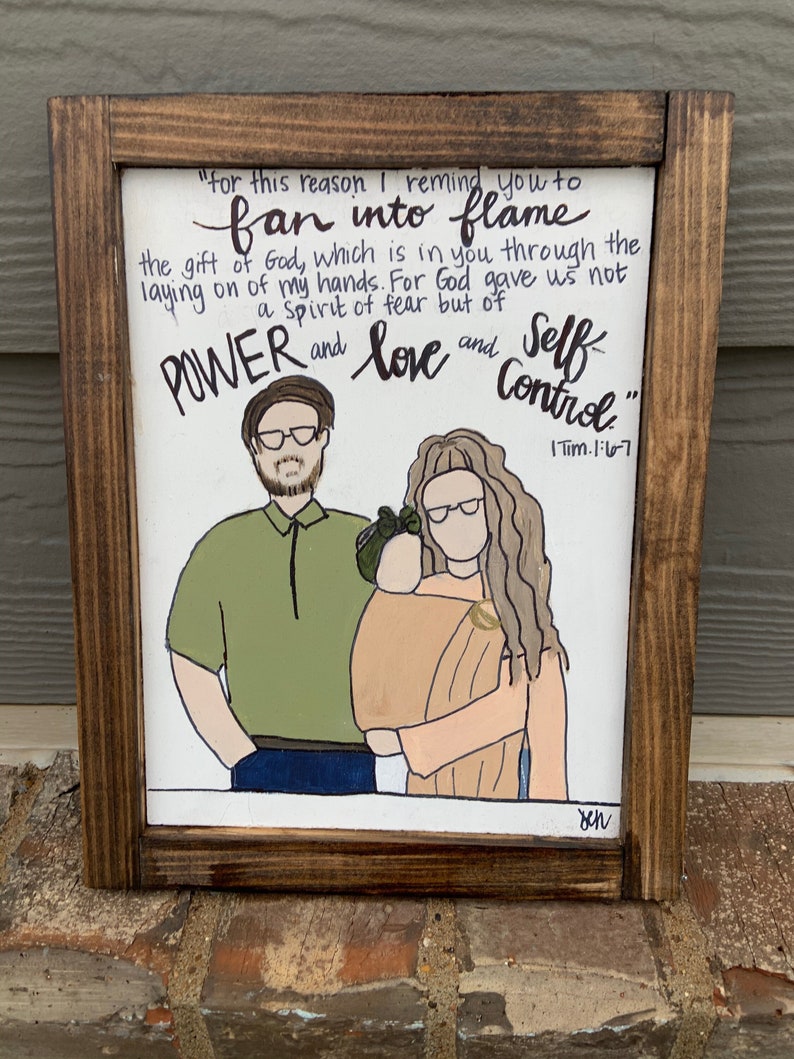 "for this reason I remind you to
fan into flame
the gift of God, which is in you through the
laying on of my hands. For God gave us not
a spirit of fear but of
POWER and love and Self-
Control."
1 Tim. 1:6-7